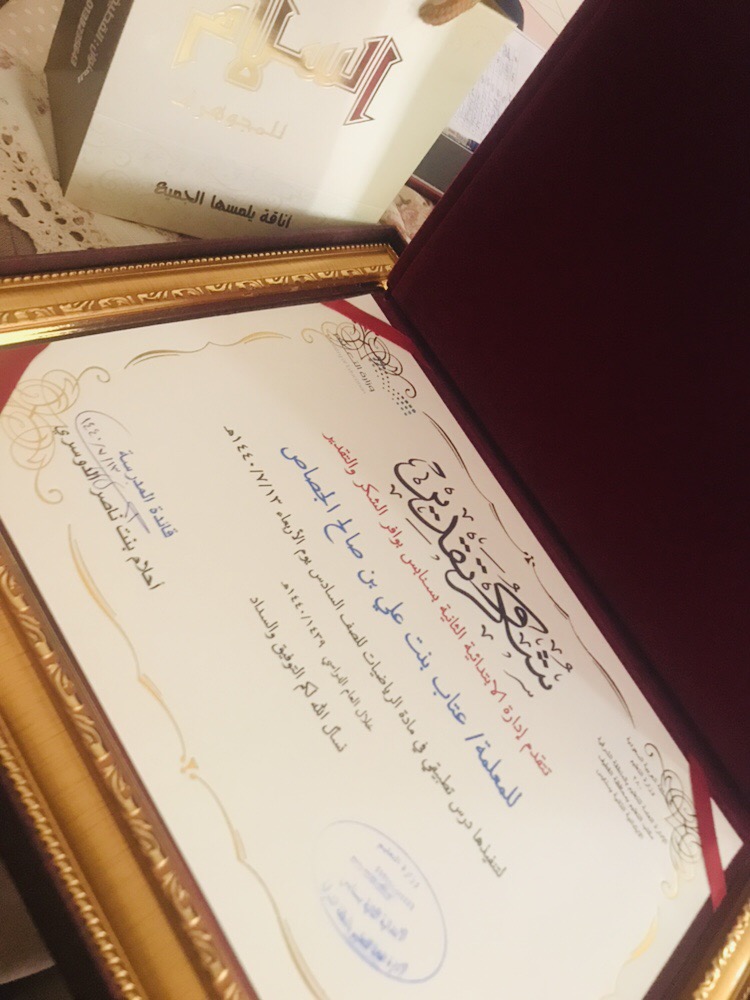 السلام
للمجوهرات
اناقة يلمسها الجميع
وزارة التعليم
شكر وتقدير
تتقدم إدارة الابتدائية الثانية بسنابس بوافر الشكر والتقدير
للمعلمة / عتاب بنت علي بن صالح الجصاص
لتنفيذها درس تطبيقي في مادة الرياضيات للصف السادس يوم الأربعاء ١٤٤٠/٧/١٣هـ
خلال العام الدراسي ١٤٤٠/١٤٣٩هـ
نسأل الله لكم التوفيق والسداد
قائدة المدرسة
١٤٤٠/٧/١٣
أحلام بنت ناصر الدوسري